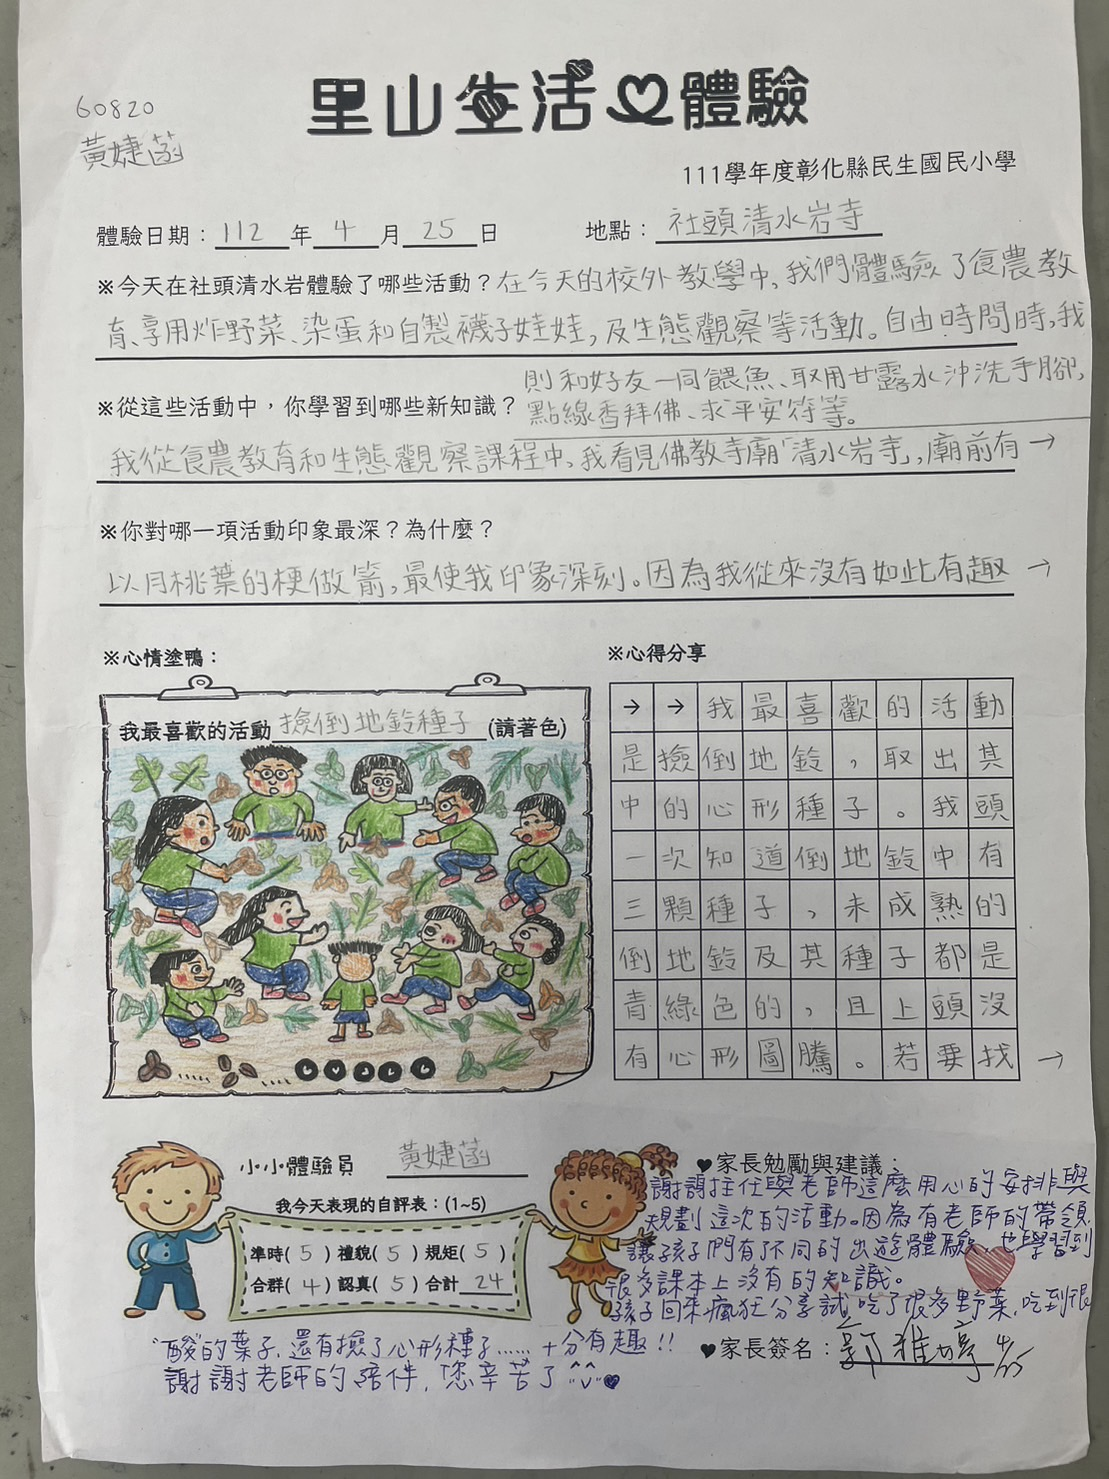 60820
黃婕菡
里山生活體驗
111學年度彰化縣民生國民小學
體驗日期：112年4月25日 地點：社頭清水岩寺
※今天在社頭清水岩體驗了哪些活動？在今天的校外教學中，我們體驗了食農教
育、享用炸野菜、染蛋和自製襪子娃娃，及生態觀察等活動。自由時間時，我
則和好友一同餵魚、取用甘露水沖洗手腳，
※從這些活動中，你學習到哪些新知識？點線香拜佛、求平安符等。
我從食農教育和生態觀察課程中，我看見佛教寺廟「清水岩寺」，廟前有→
※你對哪一項活動印象最深？為什麼？
以月桃葉的梗做箭，最使我印象深刻。因為我從來沒有如此有趣→
※心情塗鴨：
我最喜歡的活動撿倒地鈴種子(請著色)
※心得分享
→→我最喜歡的活動
是撿倒地鈴，取出其
中的心形種子。我頭
一次知道倒地鈴中有
三顆種子，未成熟的
倒地鈴及其種子都是
青綠色的，且上頭沒
有心形圖騰。若要找→
小小體驗員 黃婕菡
我今天表現的自評表：(1~5)
準時(5)禮貌(5)規矩(5)
合群(4)認真(5)合計24
♥家長勉勵與建議：
謝謝主任與老師這麼用心的安排與
規劃這次的活動。因為有老師的帶領
讓孩子們有了不同的出遊體驗，也學習到
很多課本上沒有的知識。
孩子回來瘋狂分享試吃了很多野菜，吃到很
"酸"的葉子，還有撿了心形種子……十分有趣!!
謝謝老師的陪伴，您辛苦了^v^♥
♥家長簽名：郭雅婷 4/25